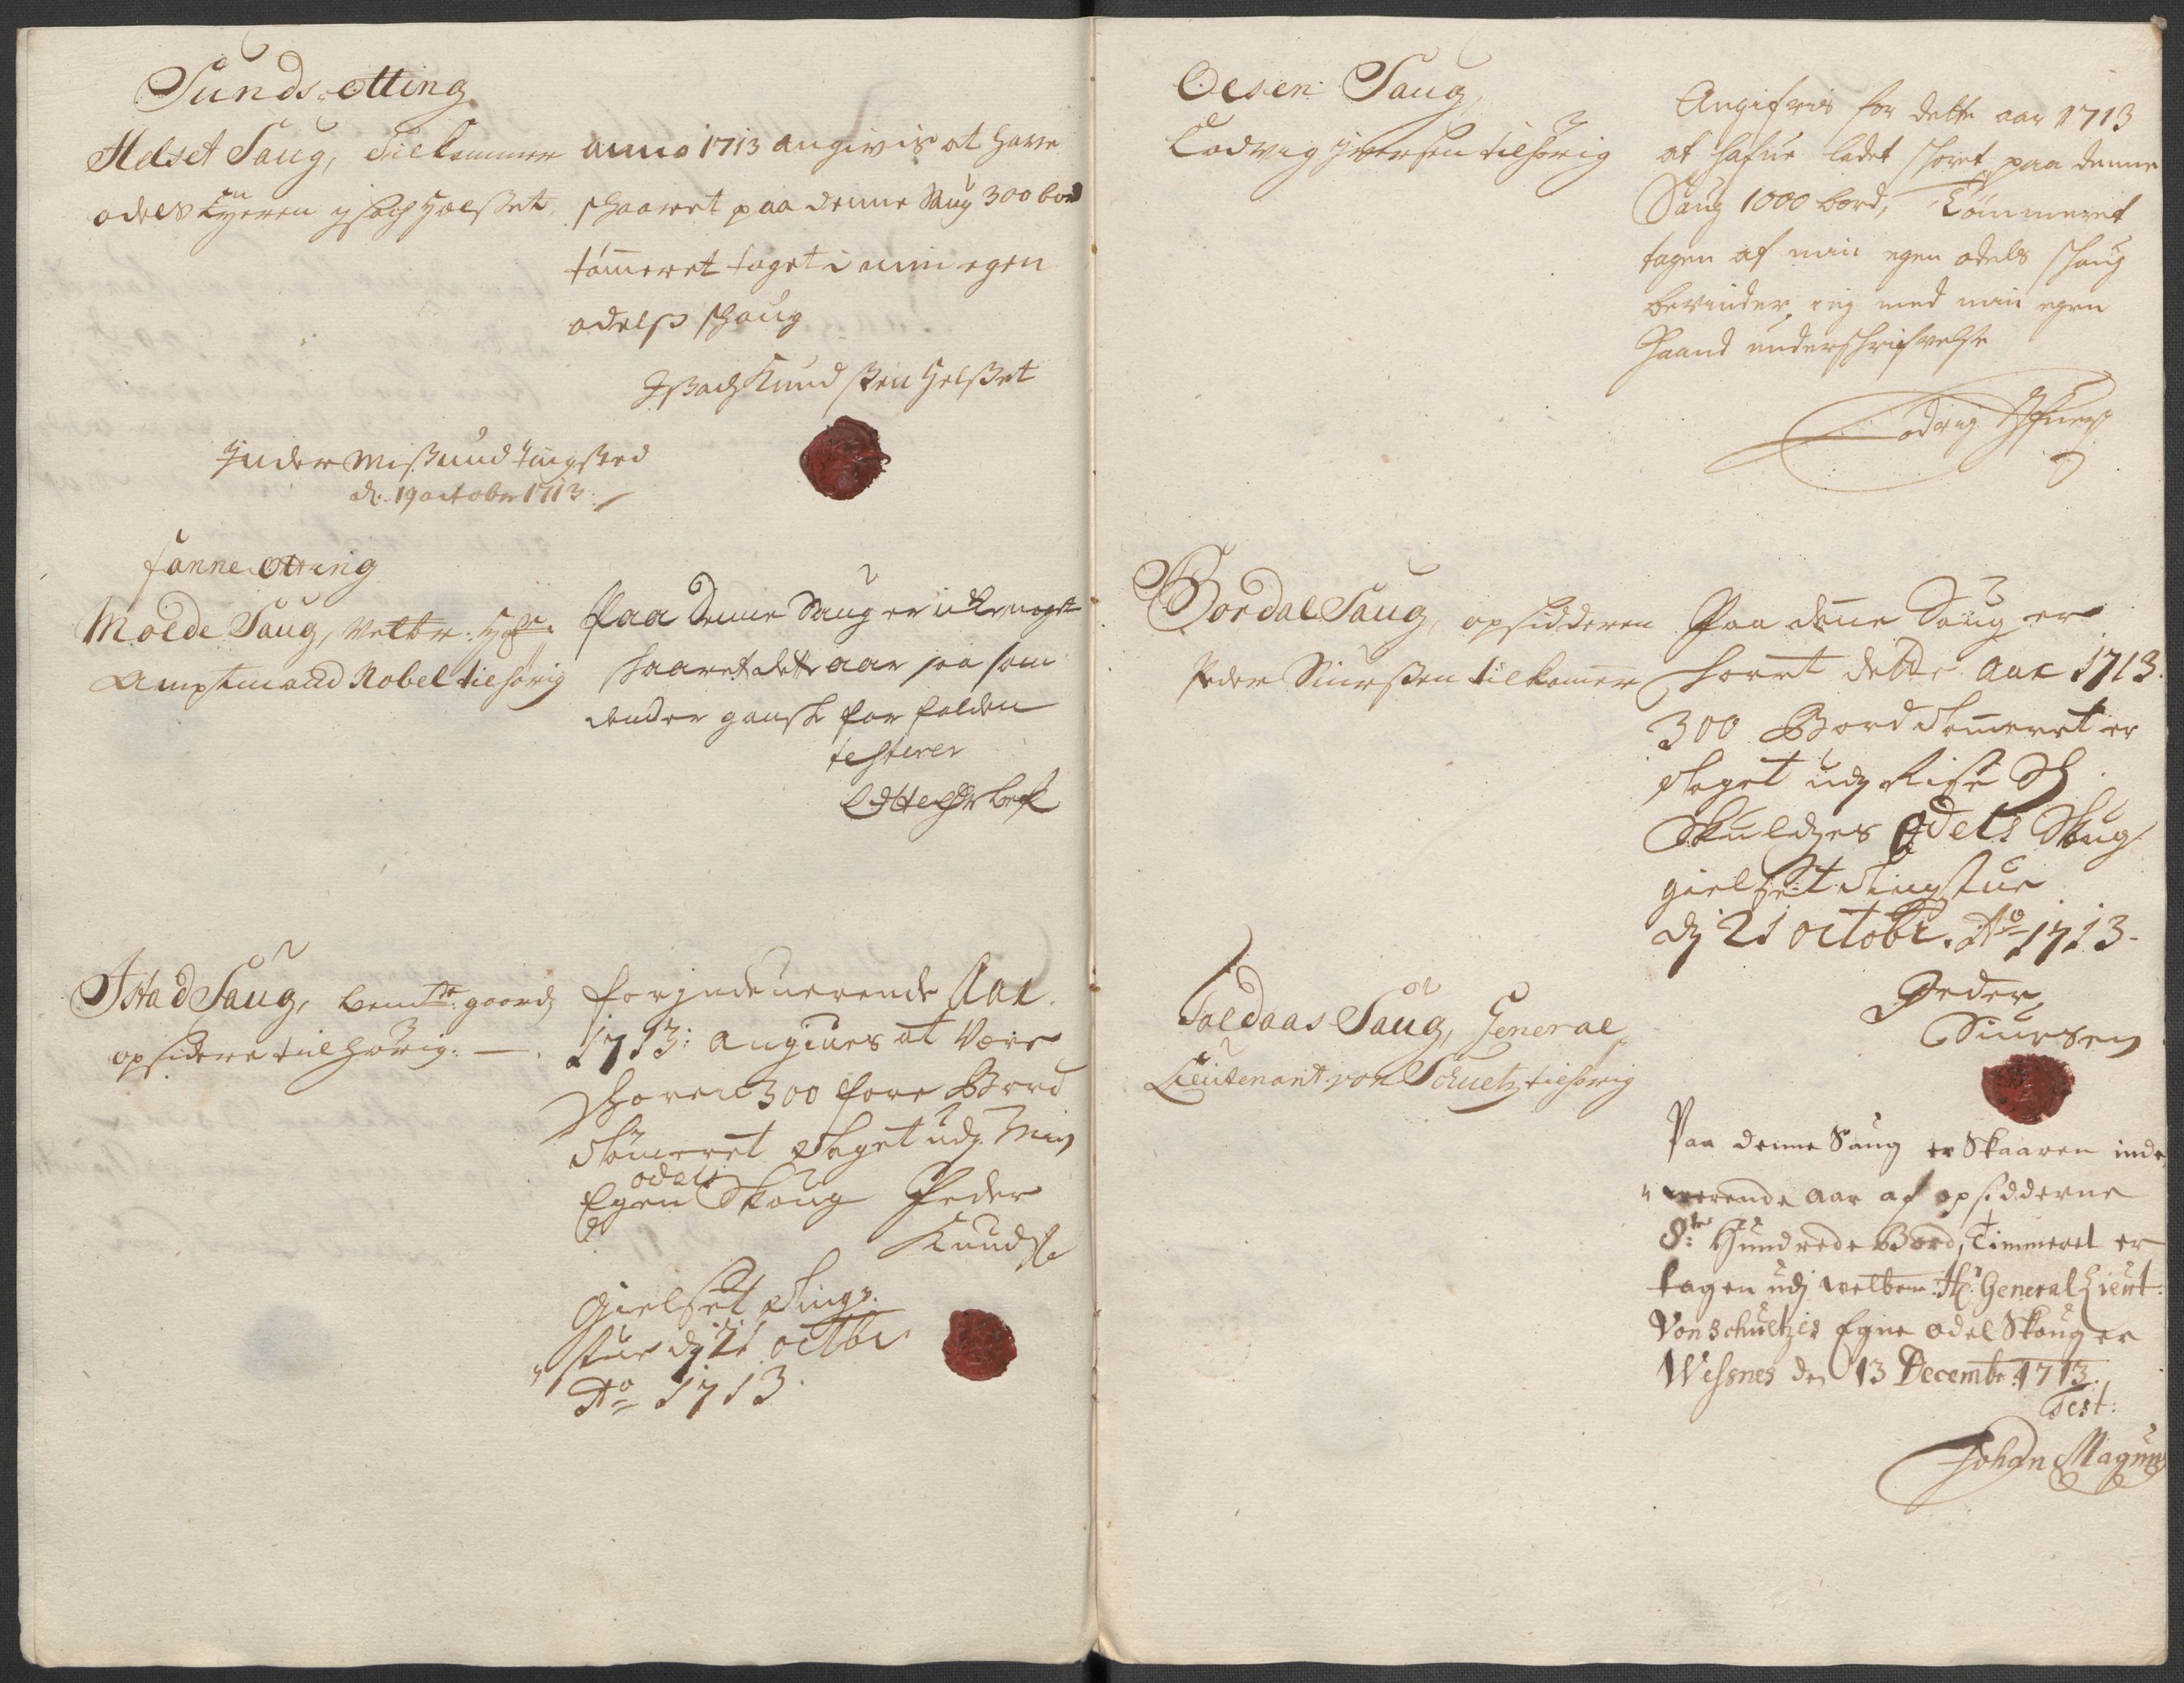 Sunds-otting
Helset Saug, Tilkommer
odels Eyeren Jsach Helset
anno 1713 angivis at have
schaaret paa denne Saug 300 bord
tømeret taget i min egen
odelss schoug
Jsach Knudsen Helset
Jnder Misund tingsted
d. 19 octobr 1713.
fanne otting
Molde Saug, Velbr:
Amptmand Nobel tilhørig
Paa denne Saug er icke noget
schaaret dette aar saa som
dend er gansk forfalden
testerer
Jstad Saug, bemte gaards
opsidere tilhørig.
for indeverende Aar
1713: angives at være
schoren 300 fore Bord
Tømeret taget udj Min
odels
Egen Skoug Peder
Knuds
Gielset Ting-
stue dj 21 octbr
Ao 1713.
Oesen Saug,
Lodvig Jversen tilhørig
Angifves for dette aar 1713
at hafve ladet schoret paa denne
Saug 1000 bord, Tømmeret
tagen af min egen odels schoug
bevinder ieg med min egen
Haand underschrifvelse
Lodvig
Bordal Saug, opsidderen
Peder Siursen tilkomer
Paa dene Saug er
schort dette Aar 1713.
300 Bord Tømeret er
Taget udj
odels Skoug
gielset Tingstue
dj 21 octobr. Ao 1713.
Peder
Siursen
Toldaas Saug, General
Lieutenant von Schultz tilhørig
Paa denne Saug er Skaaren inde
værende aar af opsidderne
8te Hundrede Bord, Timmeret er
tagen udj welbr. Hr. General Lieut:
Von schultzes Egne odel Skouger
Wessnes den 13 Decembr 1713.
Test:
Johan Magnus